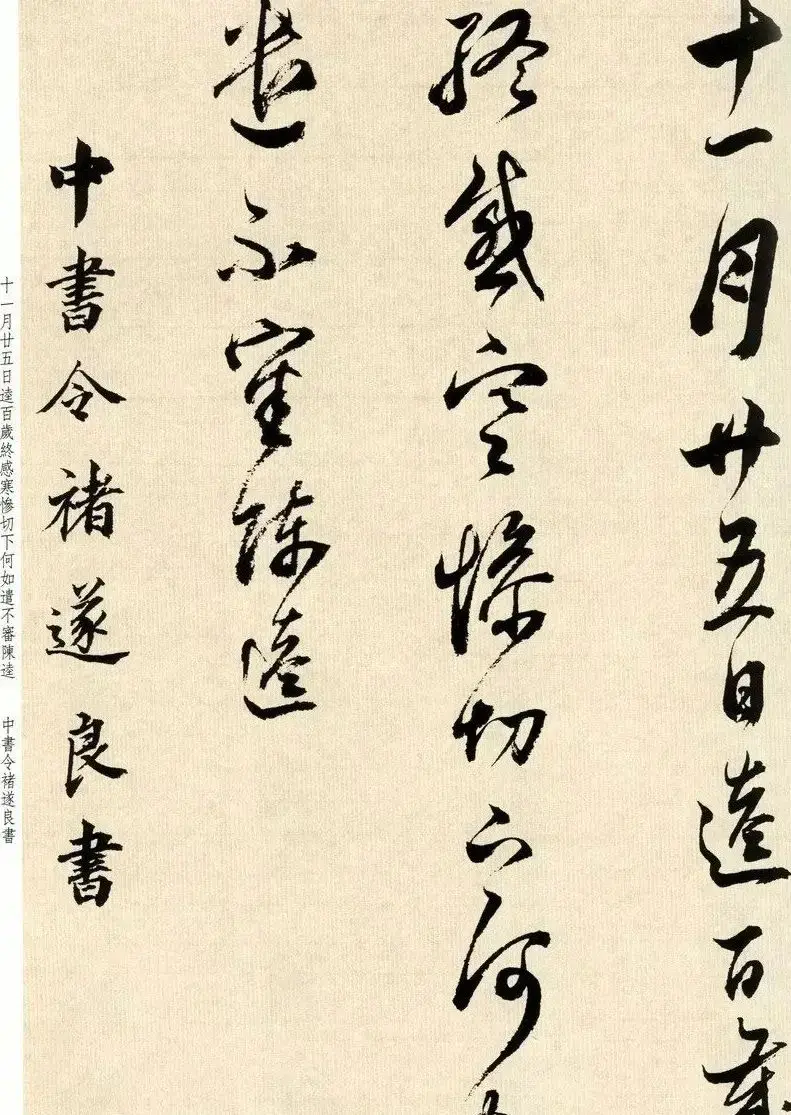 十一月廿五日逵百歲
終感寒慘切下何如
遣不審陳逵
中書令褚遂良書
十一月廿五日逵百歲終感寒慘切下何如遣不審陳逵　中書令褚遂良書